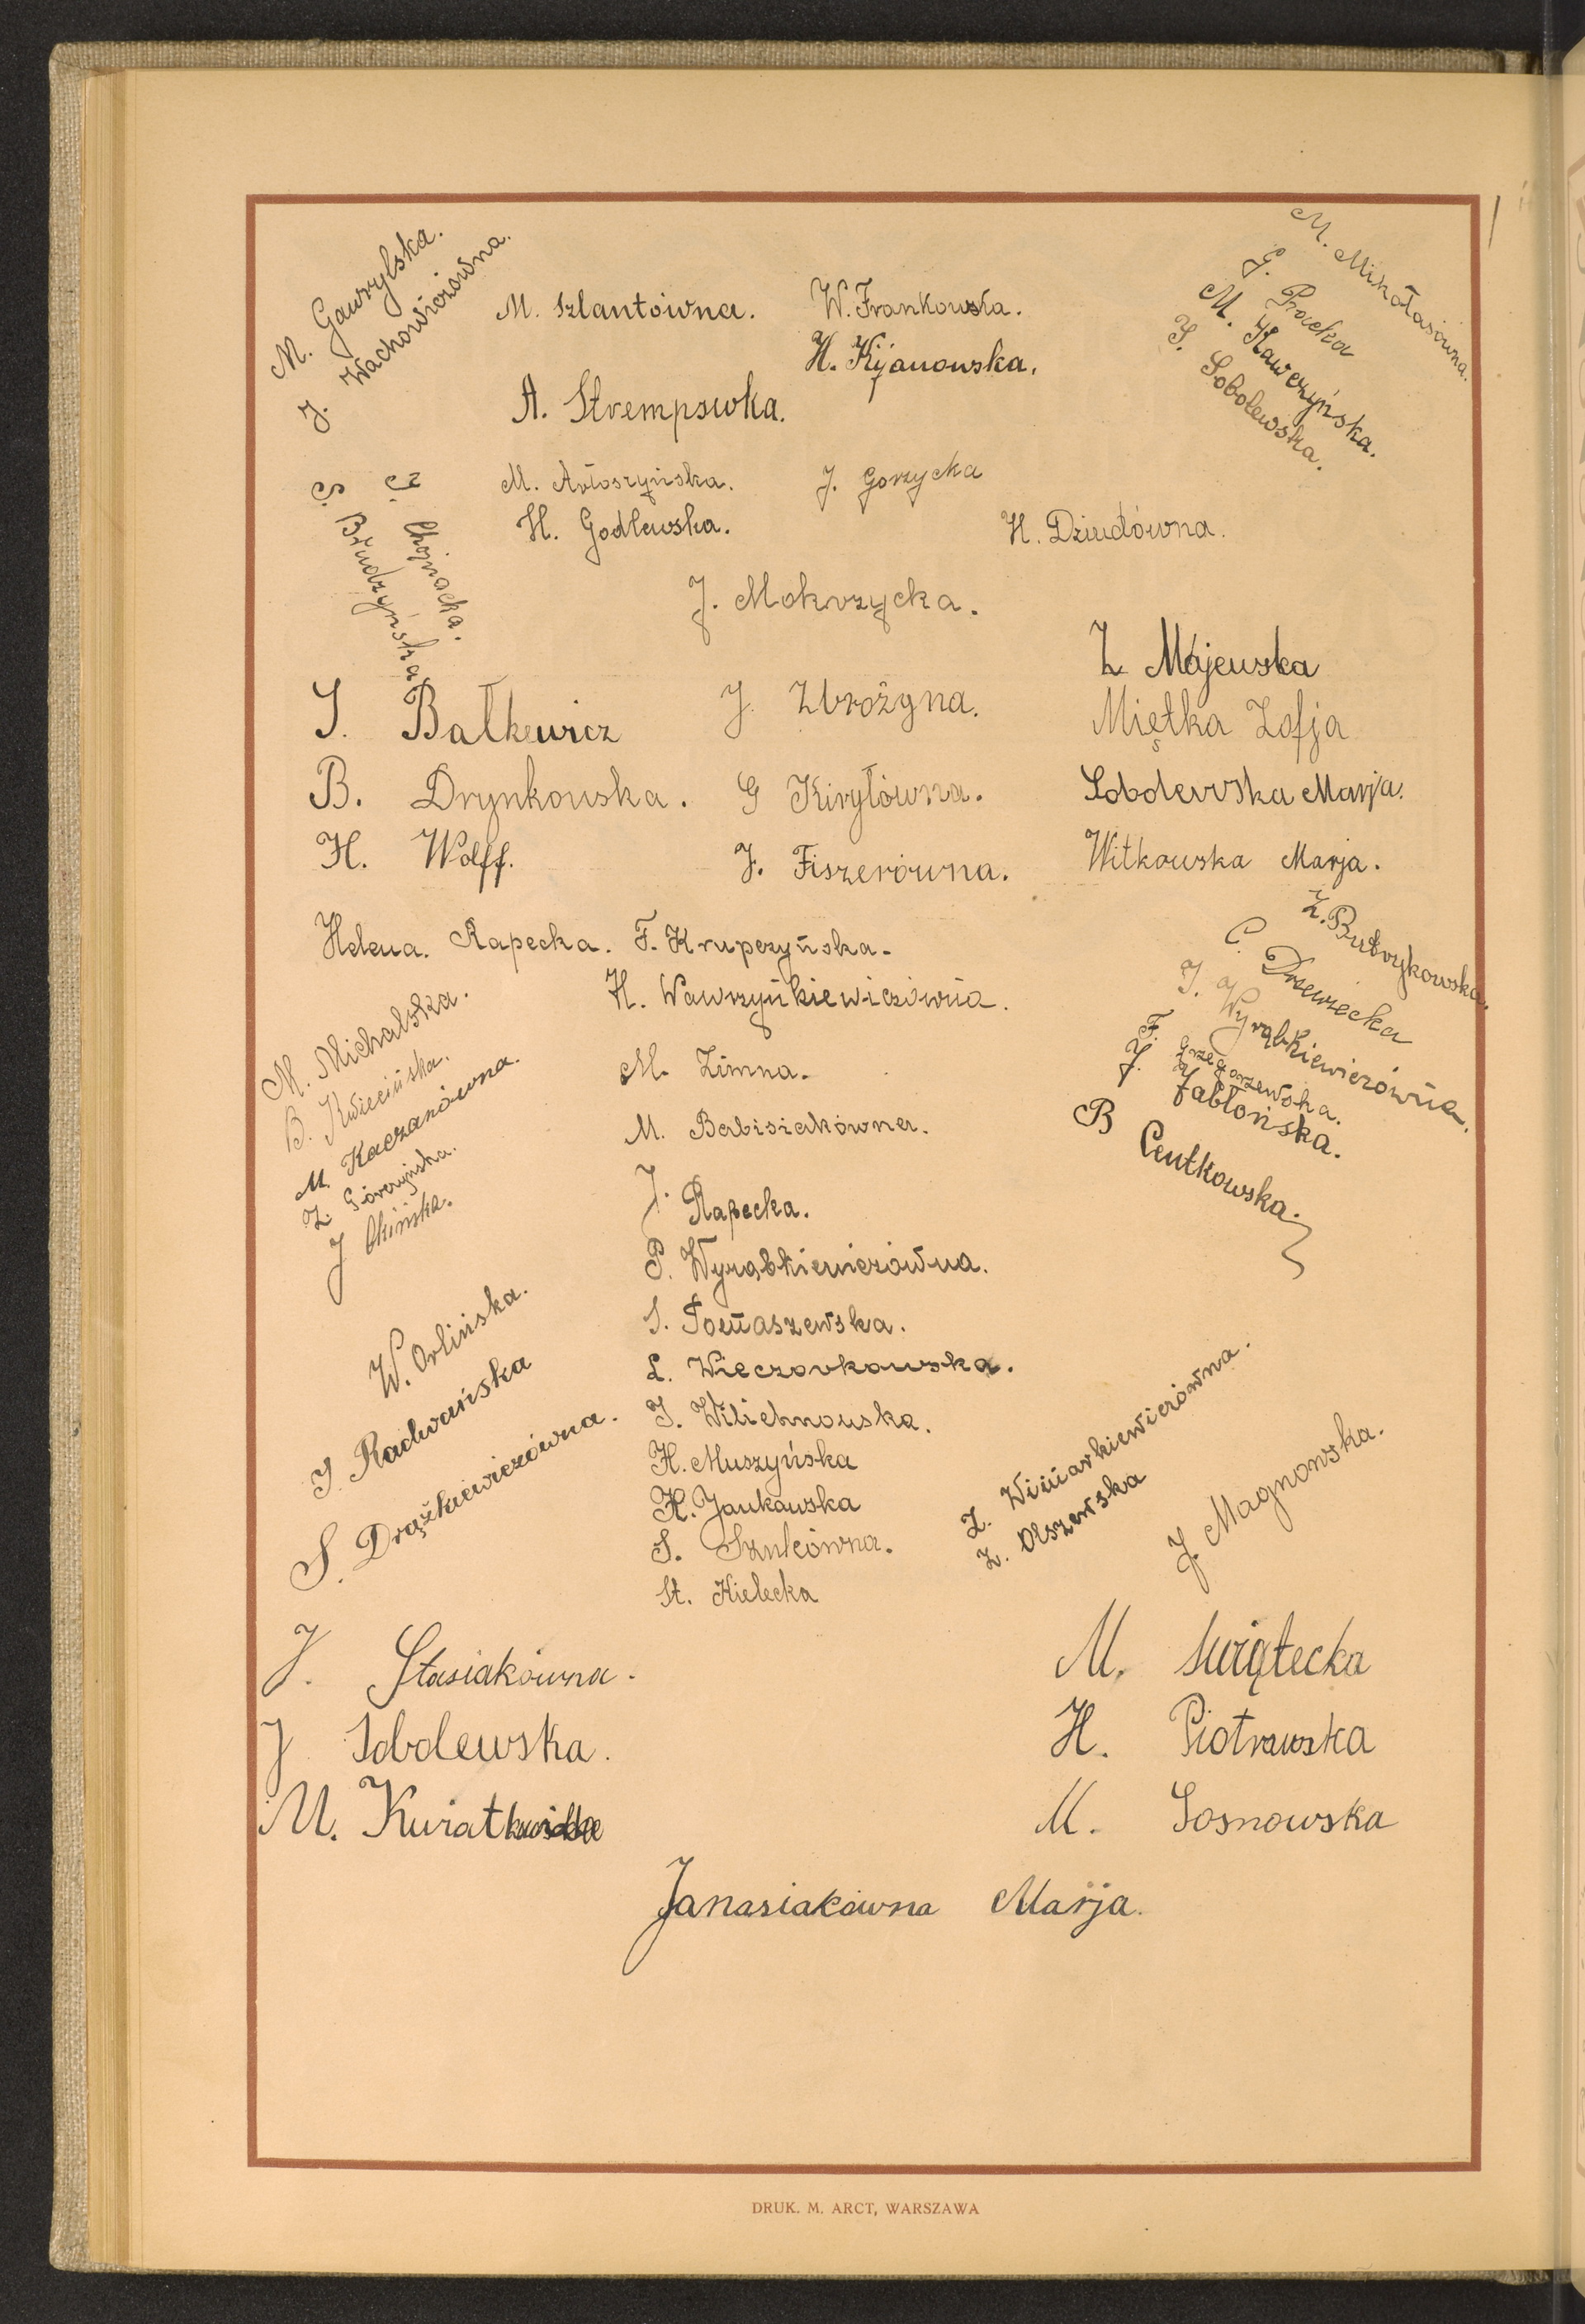 M. Gawrylska.
J. Wachowiczówna.
M. Szlantówna.
W. Frankowska.
H. Kijanowska.
A. Strempswka.
M. Mikołasówna.
G. Pracka
M. Kawczyńska.
S. Sobolewska.
S. Brudzyńska
S. Chojnacka.
M. Artoszyńska.
J. Gorzycka
H. Godlewska.
H. Dziudówna.
J. Mokrzycka.
Z Majewska
J. Bałkewicz
J. Zbrożyna.
Miętka Zofja
B. Drynkowska.
G Kiryłówna.
Sobolewska Marja.
H. Wolff.
J. Fiszerówna.
Witkowska Marja.
Helena. Rapecka. F. Krupczyńska.
H. Wawrzyńkiewiczówna.
Z. Butrykowska.
C. Drzewiecka
J. Wyrąbkiewiczówna.
F. Grzegorzewska.
J. Jabłońska.
B Centkowska.
M. Michalska.
B. Kwiecińska.
M. Kaczanówna.
Z. Góreczyńska.
J Okińska.
M. Zimna.
M. Babisiakówna.
J. Rapecka.
P. Wyrąbkiewiczówna.
S. Tomaszewska.
L. Wieczorkowska.
J. Wilichnowska.
H. Muszyńska
H. Jankowska
S. Szulcówna.
St. Kielecka
W. Orlińska.
J. Radwańska
S. Drążkiewiczówna.
Z. Winiarkiewiczówna.
Z. Olszewska
J. Magnowska.
J. Stasiakówna.
J Sobolewska.
M. Kwiatkowska
M. Swiątecka
H. Piotrowska
M. Sosnowska
Janasiakówna Marja.
DRUK. M. ARCT, WARSZAWA